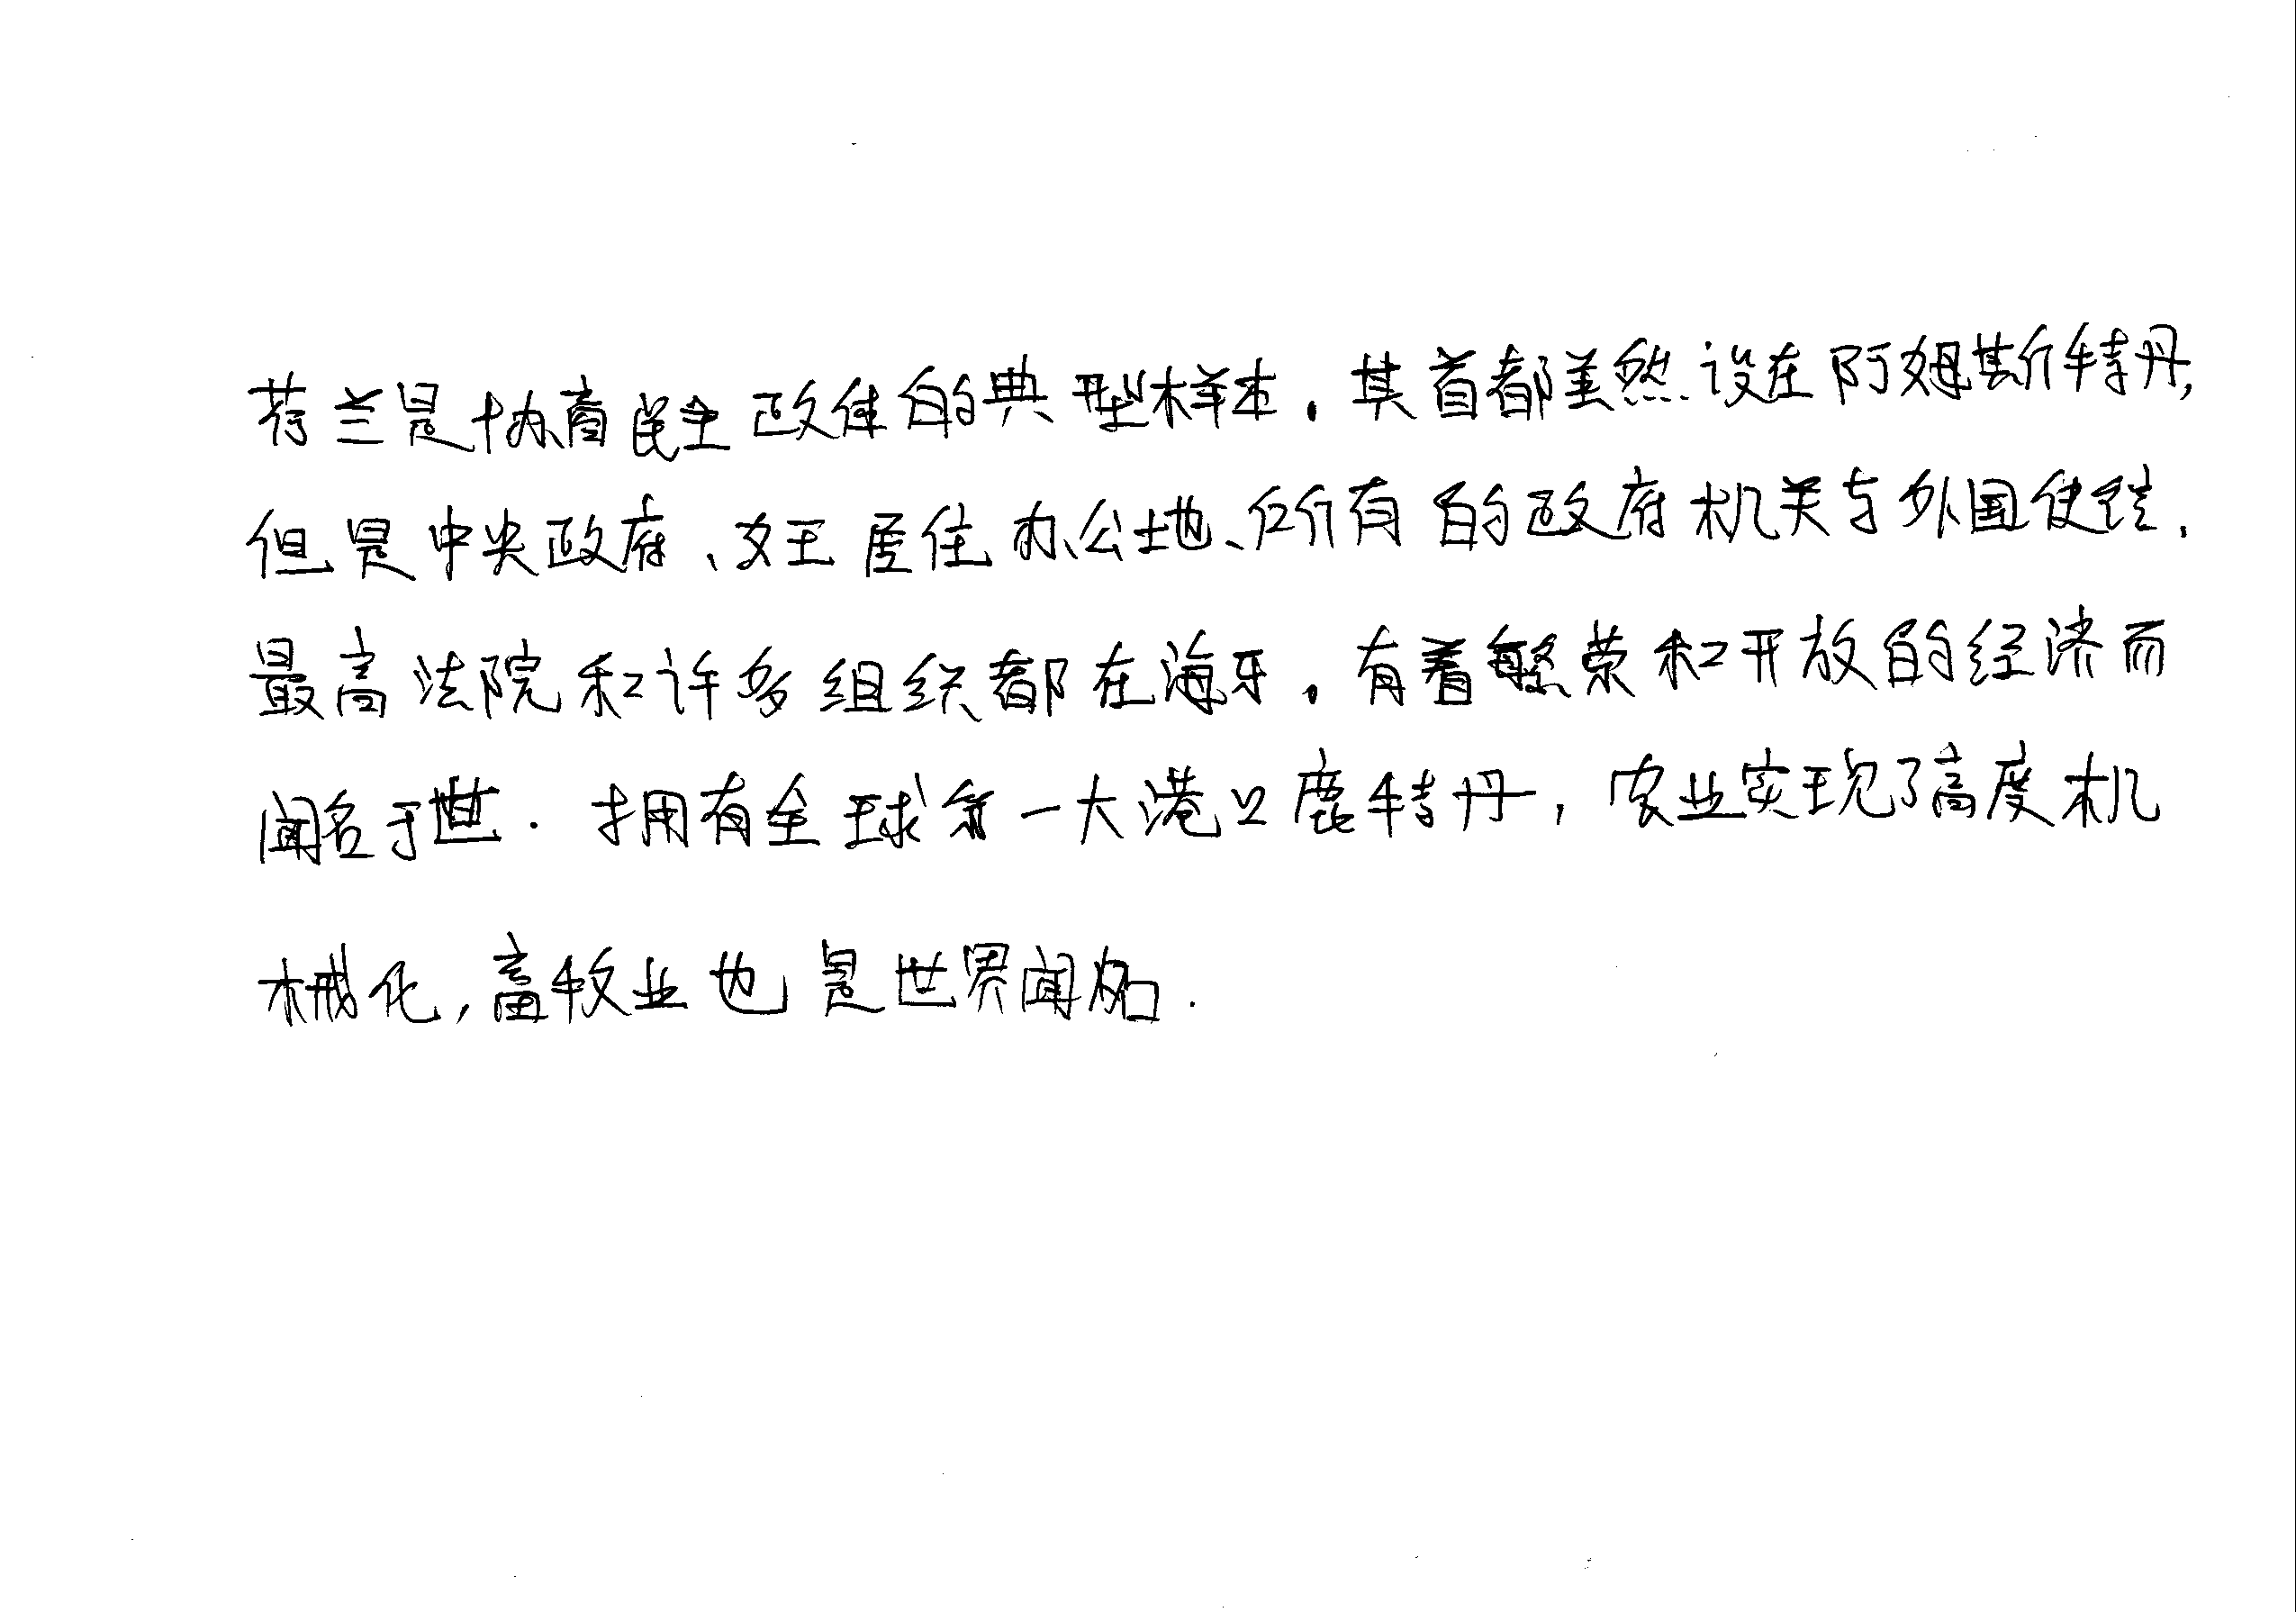 荷兰是协商民主政体的典型样本。其首都虽然设在阿姆斯特丹,
但是中央政府、女王居住办公地、所有的政府机关与外国使馆、
最高法院和许多组织都在海牙。有着繁荣和开放的经济而
闻名于世. 拥有全球第一大港口鹿特丹,农业实现了高度机
械化,畜牧业也是世界闻名.